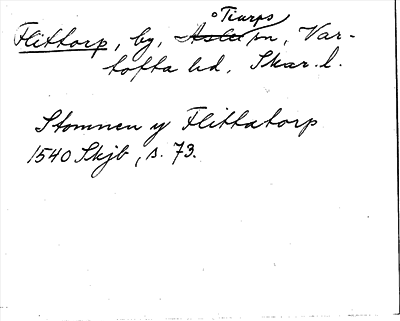 ° Tiarps
Flittorp, by, Asle sn, Var-
tofta hd, Skar. l.
Stommen y Flittatorp
1540 Skjb, s. 73.